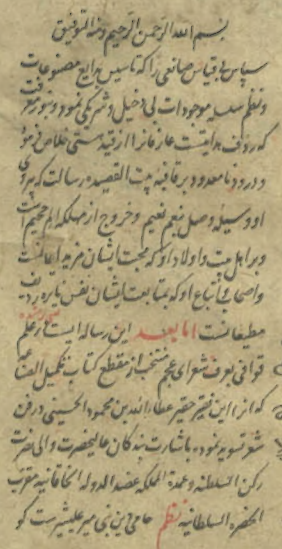 بسم الله الرحمن الرحیم و منه التوفیق
سپاس بی قیاس صانعی را که تاسیس بدایع مصنوعات
و نظم سلسله موجودات بی دخیل و شریکی نمود و نور معرفت
که ردف هدایتست عارفانرا از قید هستی خلاص فرمود
و درود نامعدود بر قافیه بیت القصیده رسالت که پیروی
او وسیله وصل نعیم نعیم و خروج از مهلکه الم جحیم است
و بر اهل بیت و اولاد او که محبت ایشان مزید
و اصحاب و اتباع او که متابعت ایشان نفس نایره
مطیعانست اما بعد این رساله ایست در علم
قوافی بعرف شعرای عجم منتخب از مقطع کتاب تکمیل الصناعه
که آنرا این فقیر حقیر عطاء الله بن محمود الحسینی در فن
شعر تسوید نموده باشارت بندگان عالیحضرت والی نصرت
رکن السلطنه و عمدة المملکه عضد الدوله الخاقانیه مقرب
الحضرة السلطانیه نظم حامی دین نبی میر علیشیر است کو